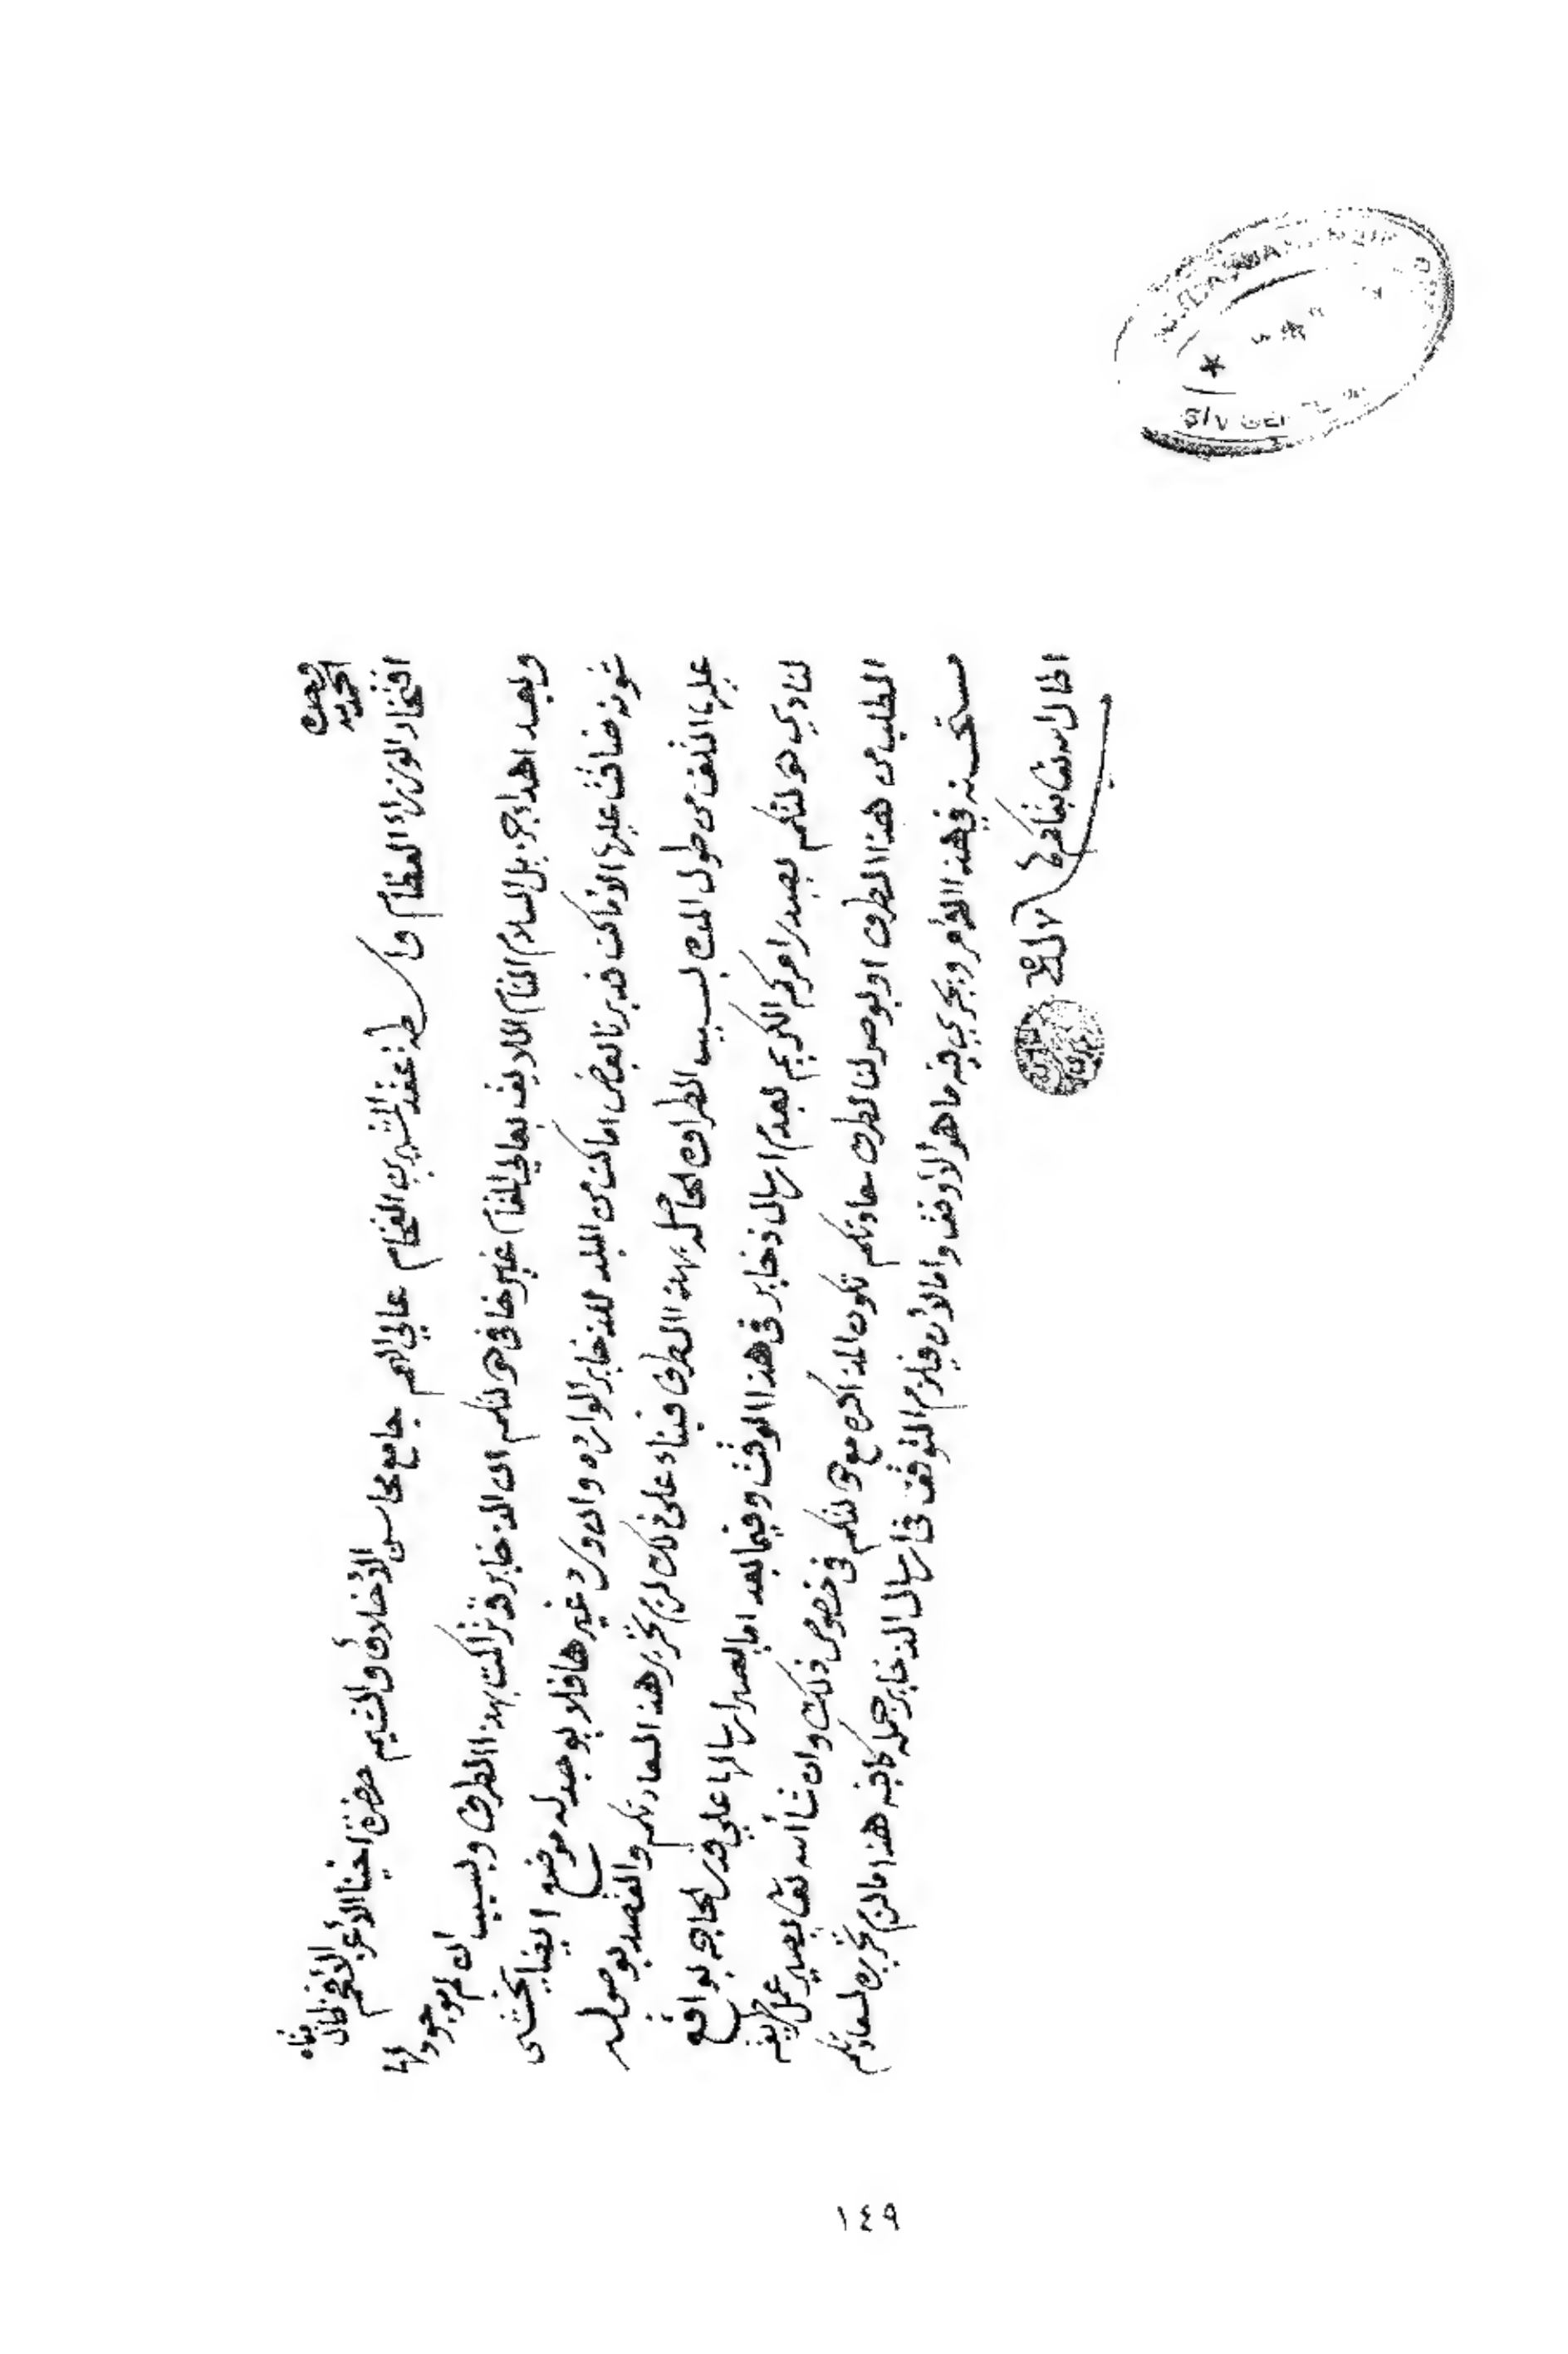 الحمد لله وحده
افتخار الوزراء العظام وا سطة عقد المشيرين الفخام عالي الهمم جامع محاسن الأخلاق والشيم حضرة اخينا الأعز الأفخم
وبعد اهداء جزيل السلام التام اللايق بعالي المقام غير خافي دولتكم ان الذخاير قد تراكمت بهذا الطرف وبسبب ان لم موجود لها
شونه ضاقت عليها الاماكن فدبرنا بعض اماكن من البلد للذخاير الوارده وان ورد غيرها فلا يوجد له موضع ايضا يخشى
عليها التلف من طول المدة بسبب الطراوه الحاصله بهذا الطرف فبناء على ذلك لزم تحرير هذا لسعادتكم والقصد بوصوله
لنادي دولتكم يصدر امركم الكريم بعدم ارسال ذخاير في هذا الوقت وفيما بعد اما يصير ارسالها علي قدر الحاجه بواقع
الطلب من هذا الطرف او بوصولنا لطرف سعادتكم تكون المذاكره مع دولتكم في خصوص ذلك وان شا الله تعالى يصير عمل طريقه
مستحسنه في هذا الأمر ويجري فيه ما هو الأوفق واما الأن فيلزم التوقف في ارسال الذخاير جملة كافيه هذا ما لزم تحريره لسعادتكم
اطال الله تعالى بقاكم
١٤٩